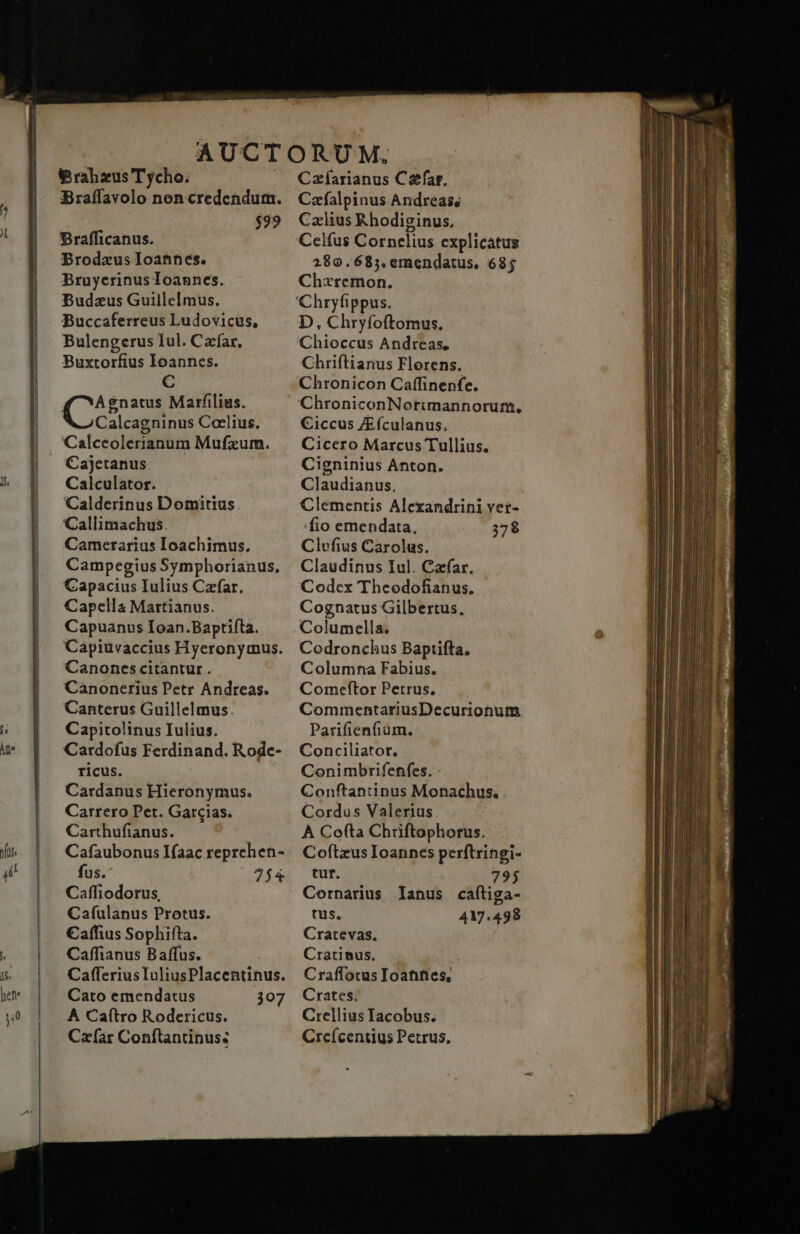 AUCTORUM.
Brahæus Tycho.
Braſſavolo non credendum.
599
Braſſicanus.
Brodæus Ioannes.
Bruyerinus Ioannes.
Budæus Guillelmus.
Buccaferreus Ludovicus,
Bulengerus Iul. Cæſar,
Buxtorfius Ioannes.
C
CAgnatus Marſilius.
Calcagninus Cœlius.
Calceolerianum Muſæum.
Cajetanus
Calculator.
Calderinus Domitius
Callimachus.
Camerarius Ioachimus.
Campegius Symphorianus,
Capacius Iulius Cæſar,
Capella Martianus.
Capuanus Ioan.Baptiſta.
Capiuvaccius Hyeronymus.
Canones citantur.
Canonerius Petr Andreas.
Canterus Guillelmus.
Capitolinus Iulius.
Cardoſus Ferdinand. Rode-
ricus.
Cardanus Hieronymus.
Carrero Pet. Garçias.
Carthuſianus.
Caſaubonus Iſaac reprehen-
ſus. 754
Caſſiodorus,
Caſulanus Protus.
Caſſius Sophiſta.
Caſſianus Baſſus.
Caſſerius Iulius Placentinus.
Cato emendatus 307
A Caſtro Rodericus.
Cæſar Conſtantinus:
Cæſarianus Cæſar.
Cæſalpinus Andreas,
Cælius Rhodiginus,
Celſus Cornelius explicatus
280.683.emendatus, 685
Chæremon.
Chryſippus.
D. Chryſoſtomus.
Chioccus Andreas,
Chriſtianus Florens.
Chronicon Caſſinenſe.
Chronicon Nortmannorum,
Ciccus Æſculanus.
Cicero Marcus Tullius.
Cigninius Anton.
Claudianus.
Clementis Alexandrini ver-
ſio emendata, 378
Cluſius Carolus.
Claudinus Iul. Cæſar.
Codex Theodoſianus.
Cognatus Gilbertus.
Columella.
Codronchus Baptiſta.
Columna Fabius.
Comeſtor Petrus.
Commentarius Decurionum
Pariſienſium.
Conciliator.
Conimbriſenſes.
Conſtantinus Monachus.
Cordus Valerius
A Coſta Chriſtophorus.
Coſtæus Ioannes perſtringi-
tur. 795
Cornarius Ianus caſtiga-
tus. 417.498
Cratevas.
Cratinus.
Craſſotus Ioannes,
Crates.
Crellius Iacobus.
Creſcentius Petrus.